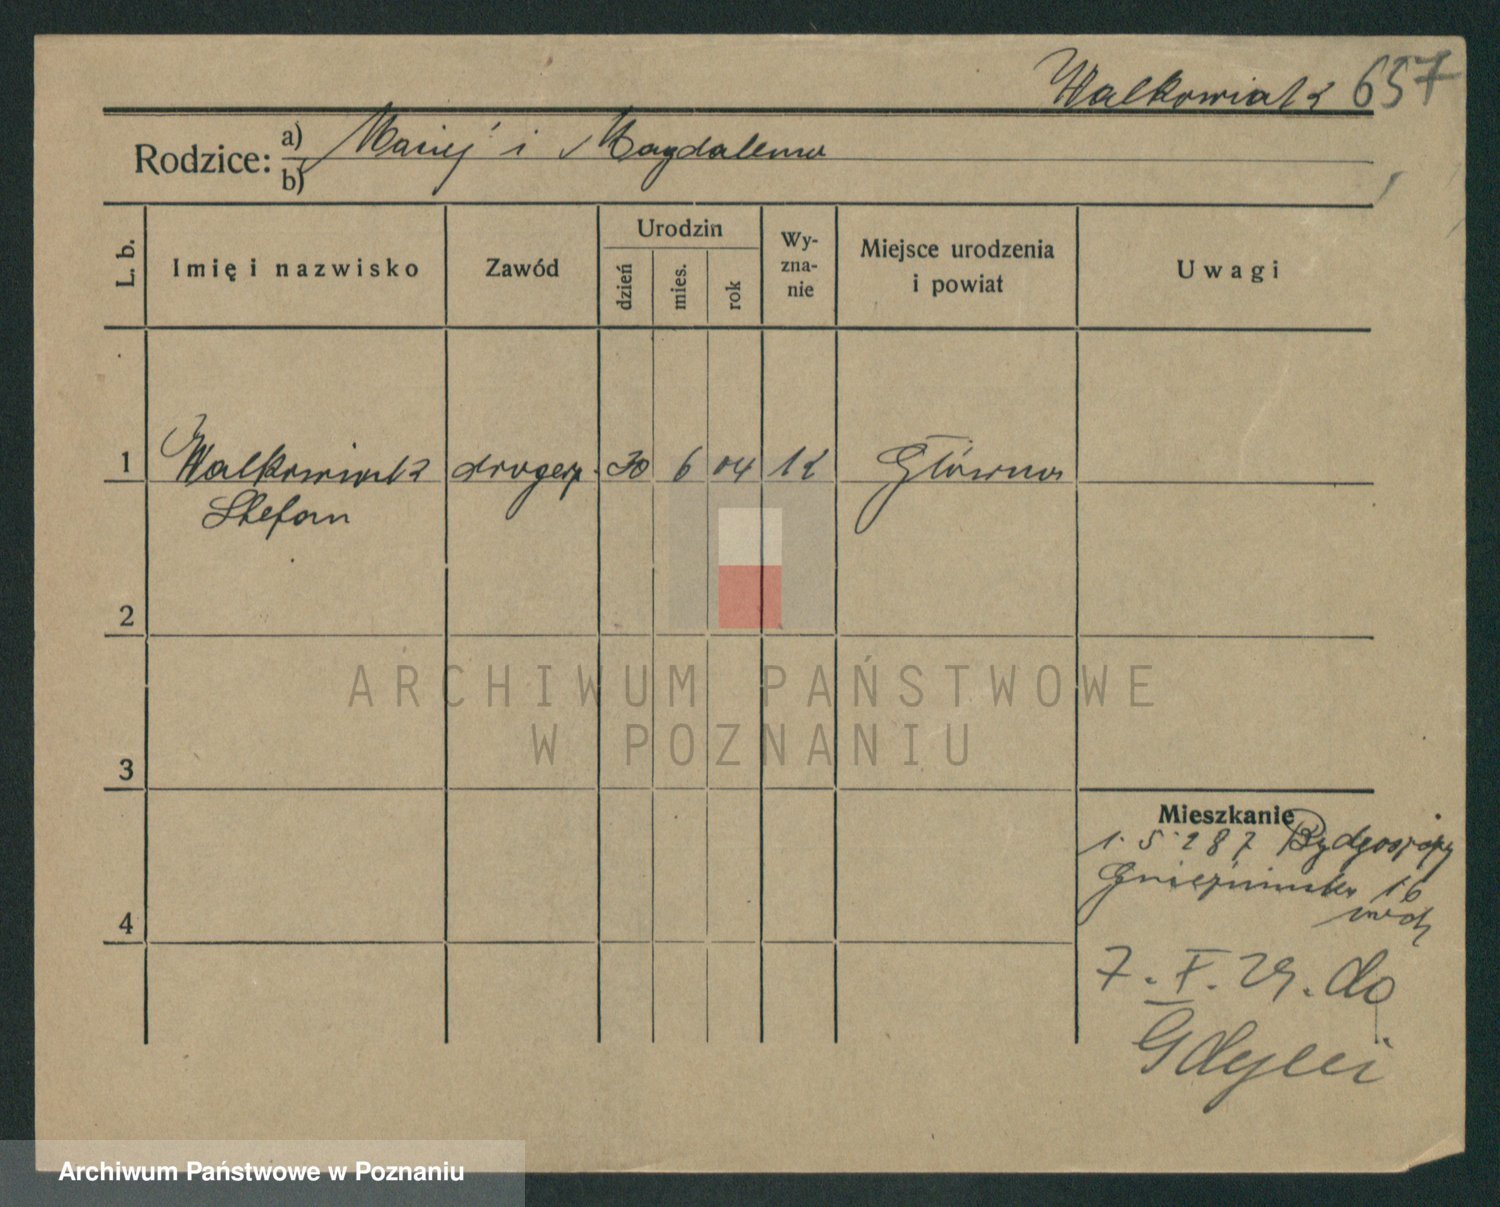 Walkowiak 657
Rodzice: a) Maciej i Magdalena
b)
L. b.
Imię i nazwisko
Zawód
Urodzin
dzień
mies.
rok
Wy-
zna-
nie
Miejsce urodzenia
i powiat
Uwagi
1 Walkowiak drogerz. 30 6 04 kk Główna
Stefan
2
ARCHIWUM PAŃSTWOWE
W POZNANIU
3
Mieszkanie
1. 5. 287 Bydgoszczy
Gnieźnieńska 16
4
7. V. 29. do
Gdyni
Archiwum Państwowe w Poznaniu